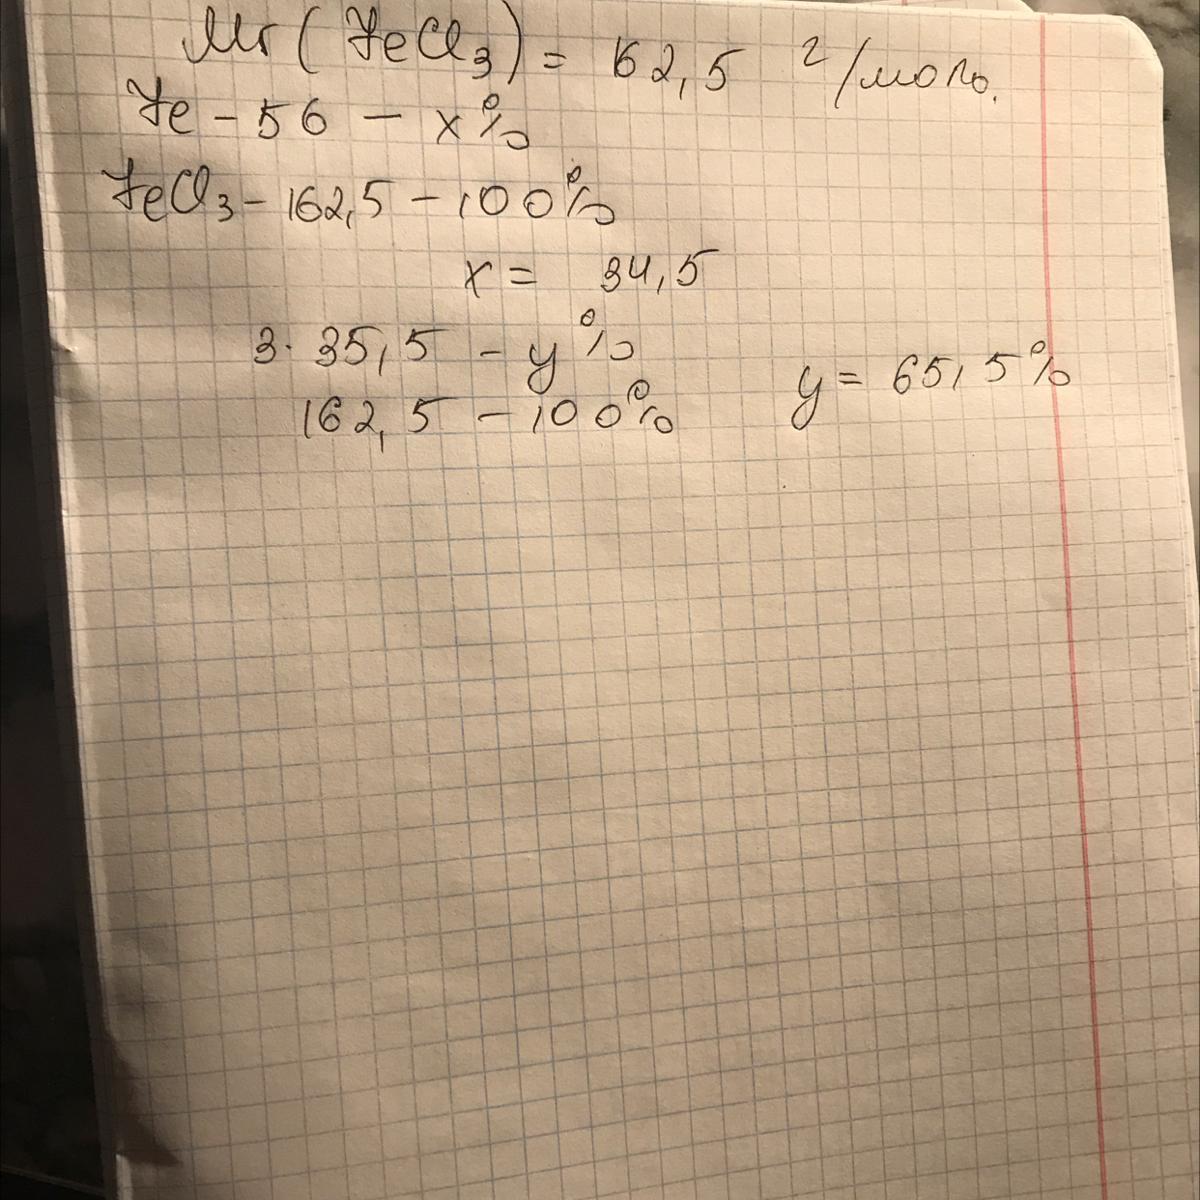 Mr(FeCl₃) = 162,5 г/моль.
Fe - 56 - x%
FeCl₃ - 162,5 - 100%
x = 34,5
3 · 35,5 - y%
162,5 - 100%
y = 65,5%